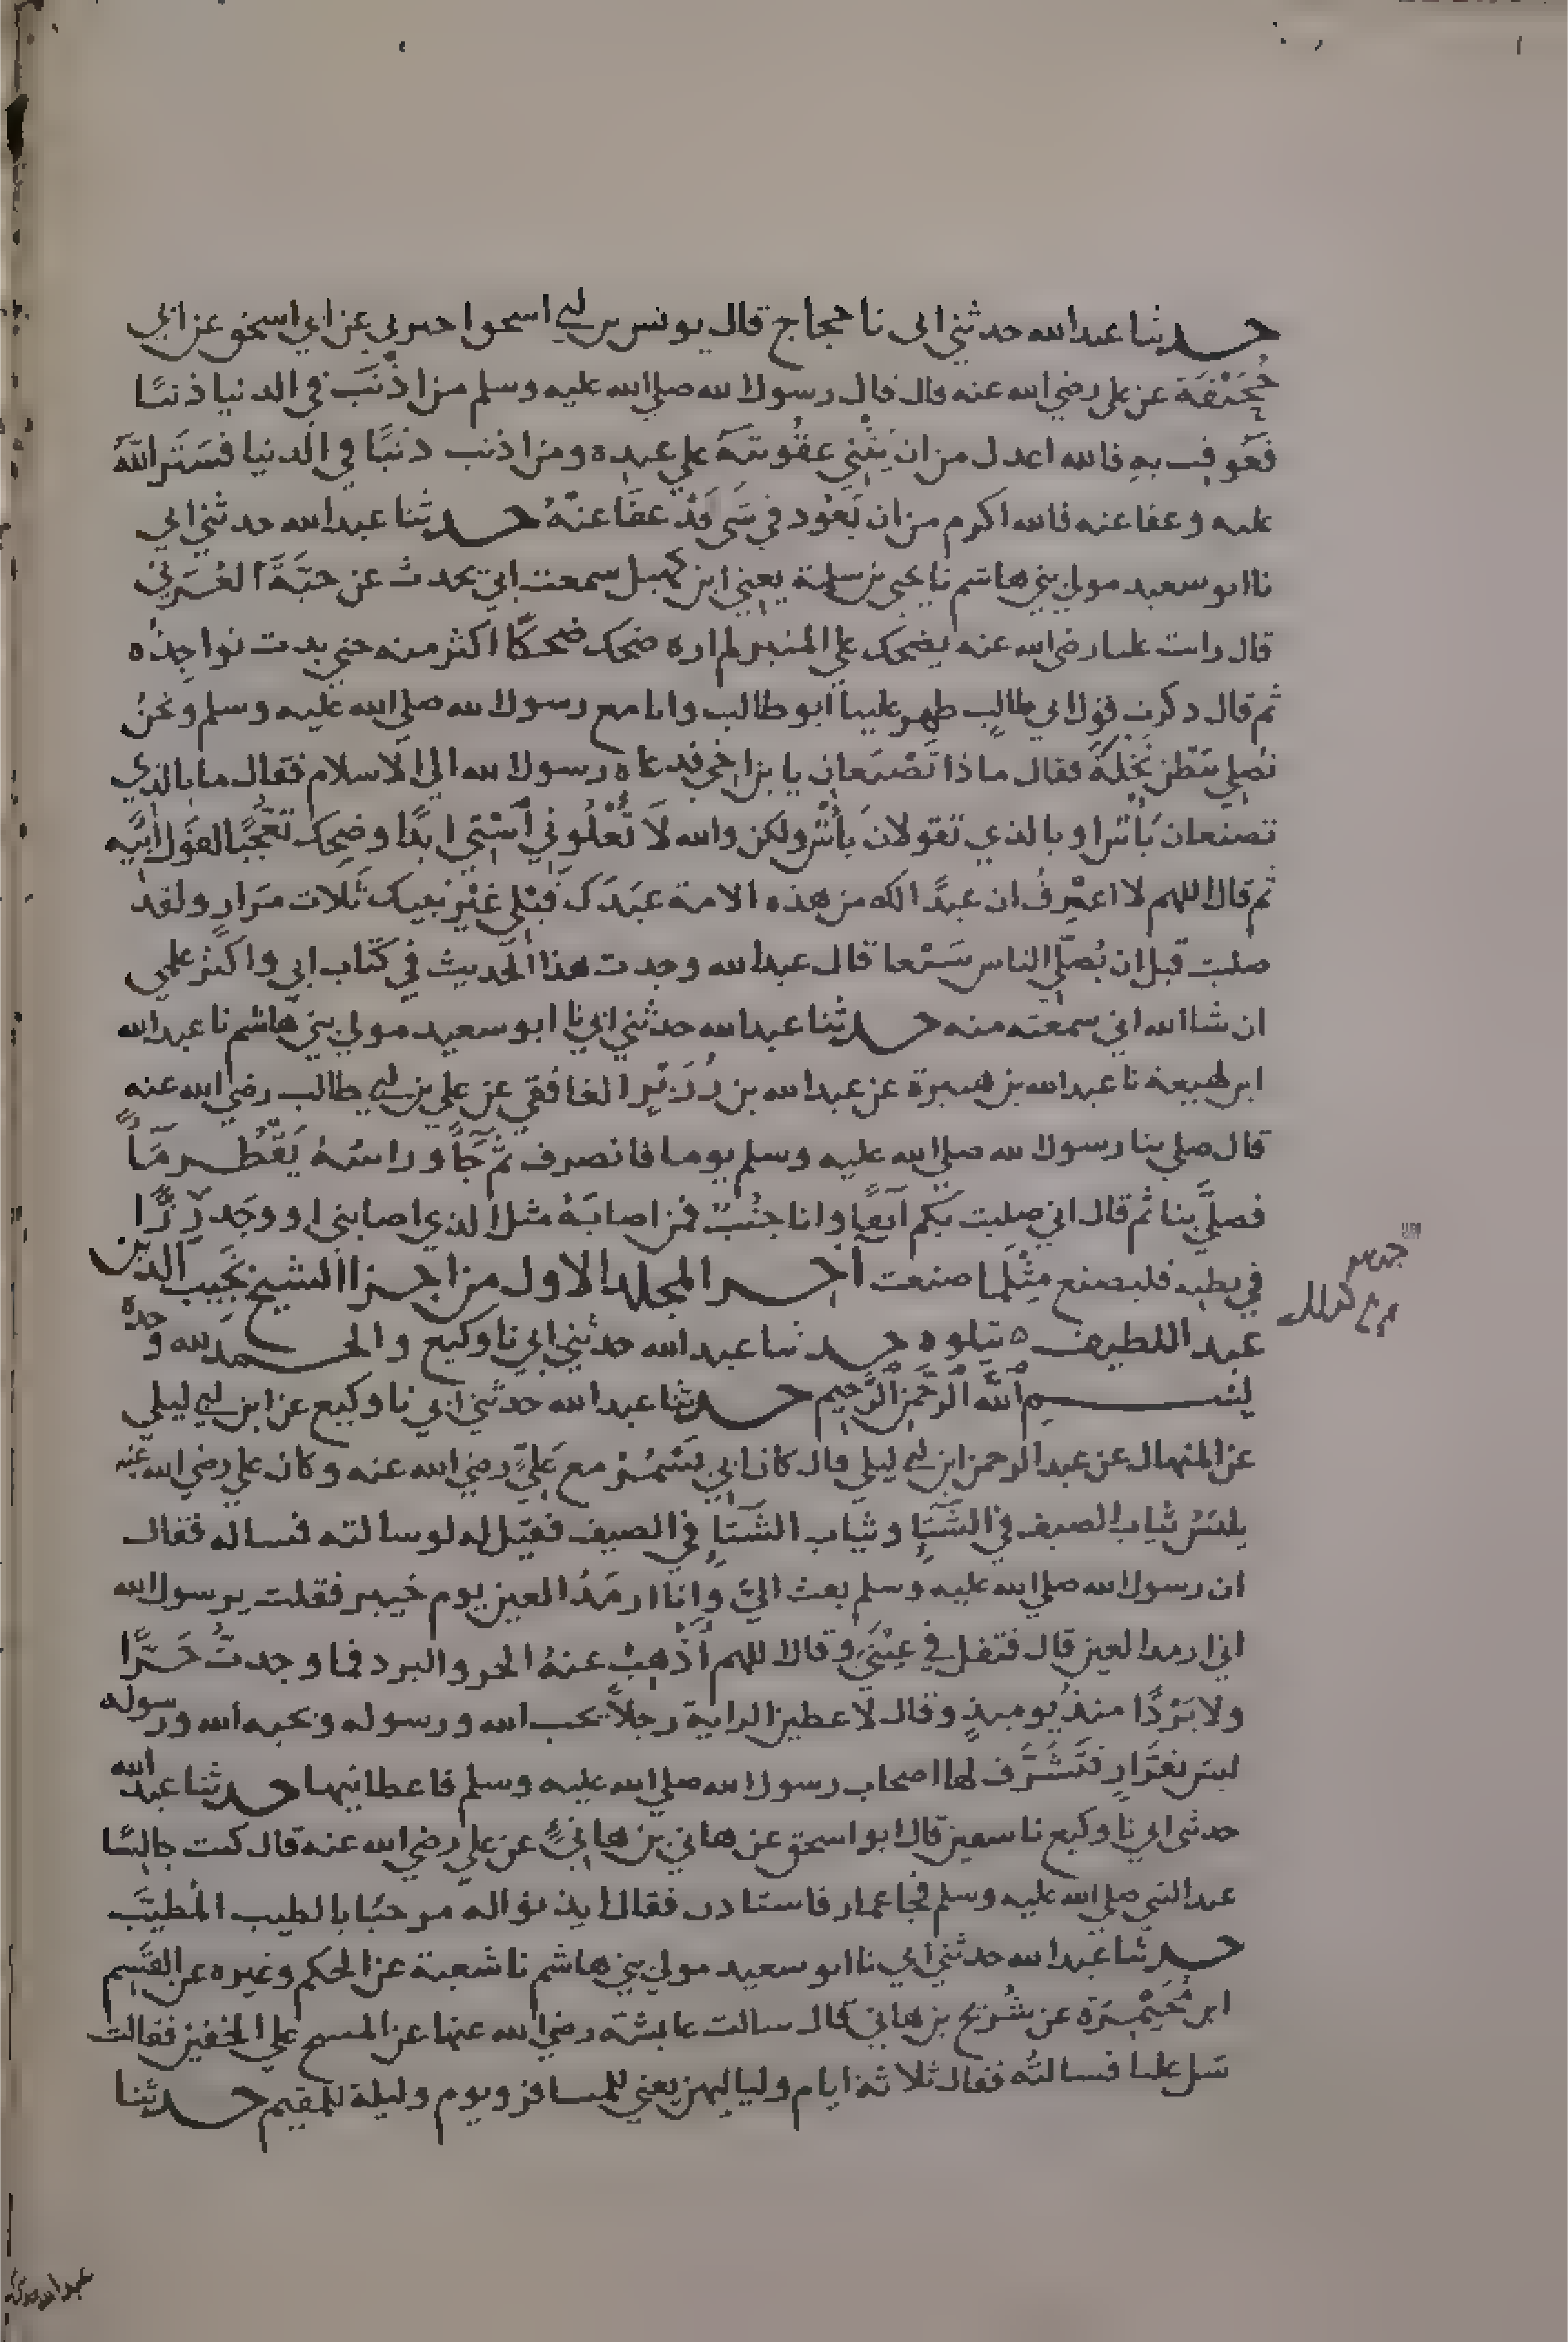 حدثنا عبد الله حدثني ابي نا حجاج قال يونس بن ابي اسحق اخبرني عن ابي اسحق عن ابي
جُحَيْفَة عن علي رضي الله عنه قال قال رسول الله صلي الله عليه وسلم من اذْنَبَ في الدنيا ذنبًا
فَعُوقِب بهِ فالله اعدل من ان يُثْنِي عقُوبتَهُ علي عبدِه ومن اذنب ذنبًا في الدنيا فسَتَر اللهُ
عليه وعفا عنه فالله اكرم من ان يَعُود في شَي قَدْ عفَا عنْهُ حدثنا عبد الله حدثني ابي
نا ابو سعيد مولي بني هاشم نا يحيي بن سلمة يعني ابن كهيل سمعت ابي يحدث عن حَبَّةَ العُرَنيّ
قال رايت عليا رضي الله عنه يضحك علي المنبر لم اره ضحك ضحكًا اكثر منه حتي بدت نواجِذُه
ثم قال ذكرت قول ابي طالبٍ ظهر علينا ابو طالب وانا مع رسول الله صلي الله عليه وسلم ونحنُ
نُصلي ببَطْن نَخْلَةَ فقال ماذا تَصْنَعانِ يا بن اخي فدعاه رسول الله الي الاسلام فقال ما بالذي
تصنعان بَأْس او بالذي تقولان بأْس ولكن والله لَا تَعْلُوني اسْتِي ابدًا وضحِك تعَجُّبًا لقول ابيه
ثم قال اللهم لا اعْرِفُ ان عبدًا لك من هذه الامة عبَدَكَ قَبْلي غيْر نبيك ثلاث مرَارٍ ولقد
صليت قبل ان يُصَلِّي الناس سَبْعا قال عبد الله وجدت هذا الحَديث في كتاب ابي واكثر علمي
ان شا الله اني سمعته منه حدثنا عبد الله حدثني ابي نا ابو سعيد مولي بني هاشم نا عبد الله
ابن لهيعة نا عبد الله بن هبيرة عن عبد الله بن زُرَيْرٍ الغافقي عن علي بن ابي طالب رضي الله عنه
قال صلي بنا رسول الله صلي الله عليه وسلم يوما فانصرف ثم جَآ وراسُهُ يَقْطُر مَآً
فصلَّي بنا ثم قال اني صليت بكم آنِفًا وانا جُنُبٌ فمن اصابَهُ مثل الذي اصابني او وجَد رِزًّا
في بطنِه فليصنع مِثْلَما صنعت آخِر المجلد الاول من اجزا الشيخ نجيب الدين
عبد اللطيف ه يتلوه حدثنا عبد الله حدثني ابي نا وكيع والحمد لله وحده
بسم الله الرحمن الرحيم حدثنا عبد الله حدثني ابي نا وكيع عن ابن ابي ليلي
عن المنهال عن عبد الرحمن ابن ابي ليلي قال كان ابي يَسْمُرُ مع عَليٍّ رضي الله عنه وكان علي رضي الله عنه
يلبَسُ ثياب الصيف في الشتَآِ وثياب الشتَآِ في الصيف فقيل له لو سالته فساله فقال
ان رسول الله صلي الله عليه وسلم بعث اليَّ وانا ارمَدُ العين يوم خيبر فقلت يرسول الله
اني ارمد العين قال فتفل في عيْنَيَّ وقال اللهم أَذْهِبْ عنهُ الحر والبرد فما وجدتُ حَرًّا
ولا بَرْدًا منذُ يوميذٍ وقال لاعطين الراية رجلاً يحب الله ورسوله ويحبه الله ورسوله
ليسَ بفرَّارٍ فتَشَرَّف لها اصحاب رسول الله صلي الله عليه وسلم فاعطانيها حدثنا عبد الله
حدثني ابي نا وكيع نا سفين قال ابو اسحق عن هاني بن هانيءٍ عن علي رضي الله عنه قال كنت جالِسًا
عند النبي صلي الله عليه وسلم فجا عمار فاستاذن فقال ايذنوا له مرحبًا بالطيب المُطيَّب
حدثنا عبد الله حدثني ابي نا ابو سعيد مولي بني هاشم نا شعبة عن الحكم وغيره عن القَسِم
ابن مُخَيْمِرَة عن شُرَيح بن هاني قال سالت عايشة رضي الله عنها عن المسح علي الخفين فقالت
سَل عليا فسالتُه فقال ثلاثة ايام ولياليهن يعني للمسافر ويوم وليلة للمقيم حدثنا